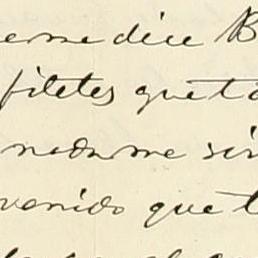 me dice B
filetes que t
nada me sir
venido que t